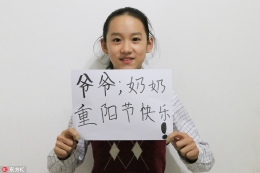 爷爷;奶奶
重阳节快乐!
东方IC